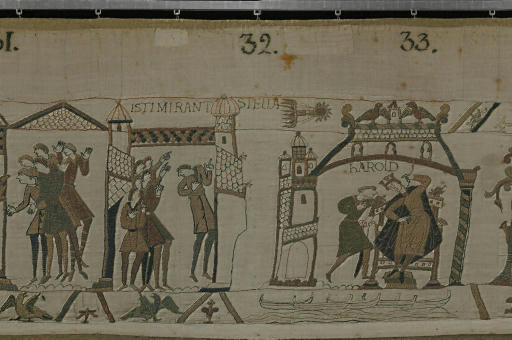 31.
32.
33.
ISTI MIRANT STELLA
hAROLD